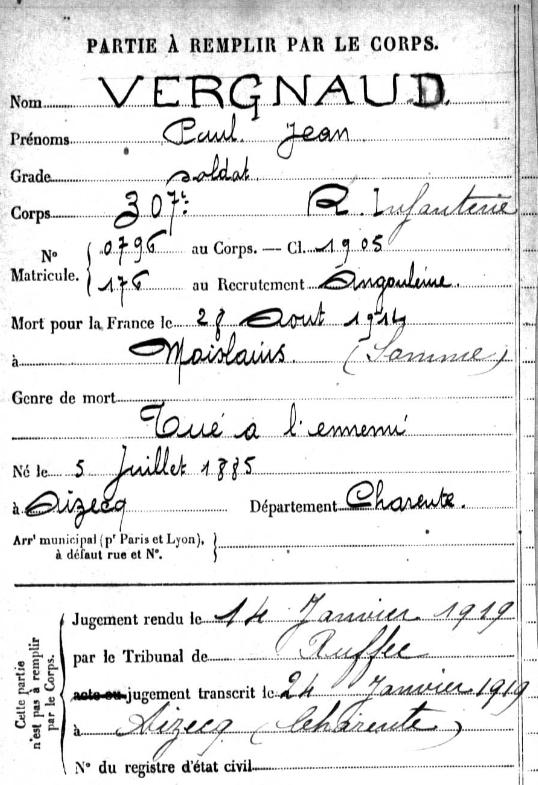 PARTIE À REMPLIR PAR LE CORPS.
Nom VERGNAUD.
Prénoms Paul Jean
Grade soldat
Corps 307e R. Infanterie
N° Matricule. 0796 au Corps. — Cl. 1905
176 au Recrutement Angoulême.
Mort pour la France le 28 Aout 1914
à Moislains (Somme)
Genre de mort
Tué a l'ennemi
Né le 5 Juillet 1885
à Aizecq Département Charente.
Arrt municipal (pr Paris et Lyon),
à défaut rue et N°.
Cette partie
n'est pas à remplir
par le Corps.
Jugement rendu le 14 Janvier 1919
par le Tribunal de Ruffec
acte ou jugement transcrit le 24 Janvier 1919
à Aizecq (Charente)
N° du registre d'état civil